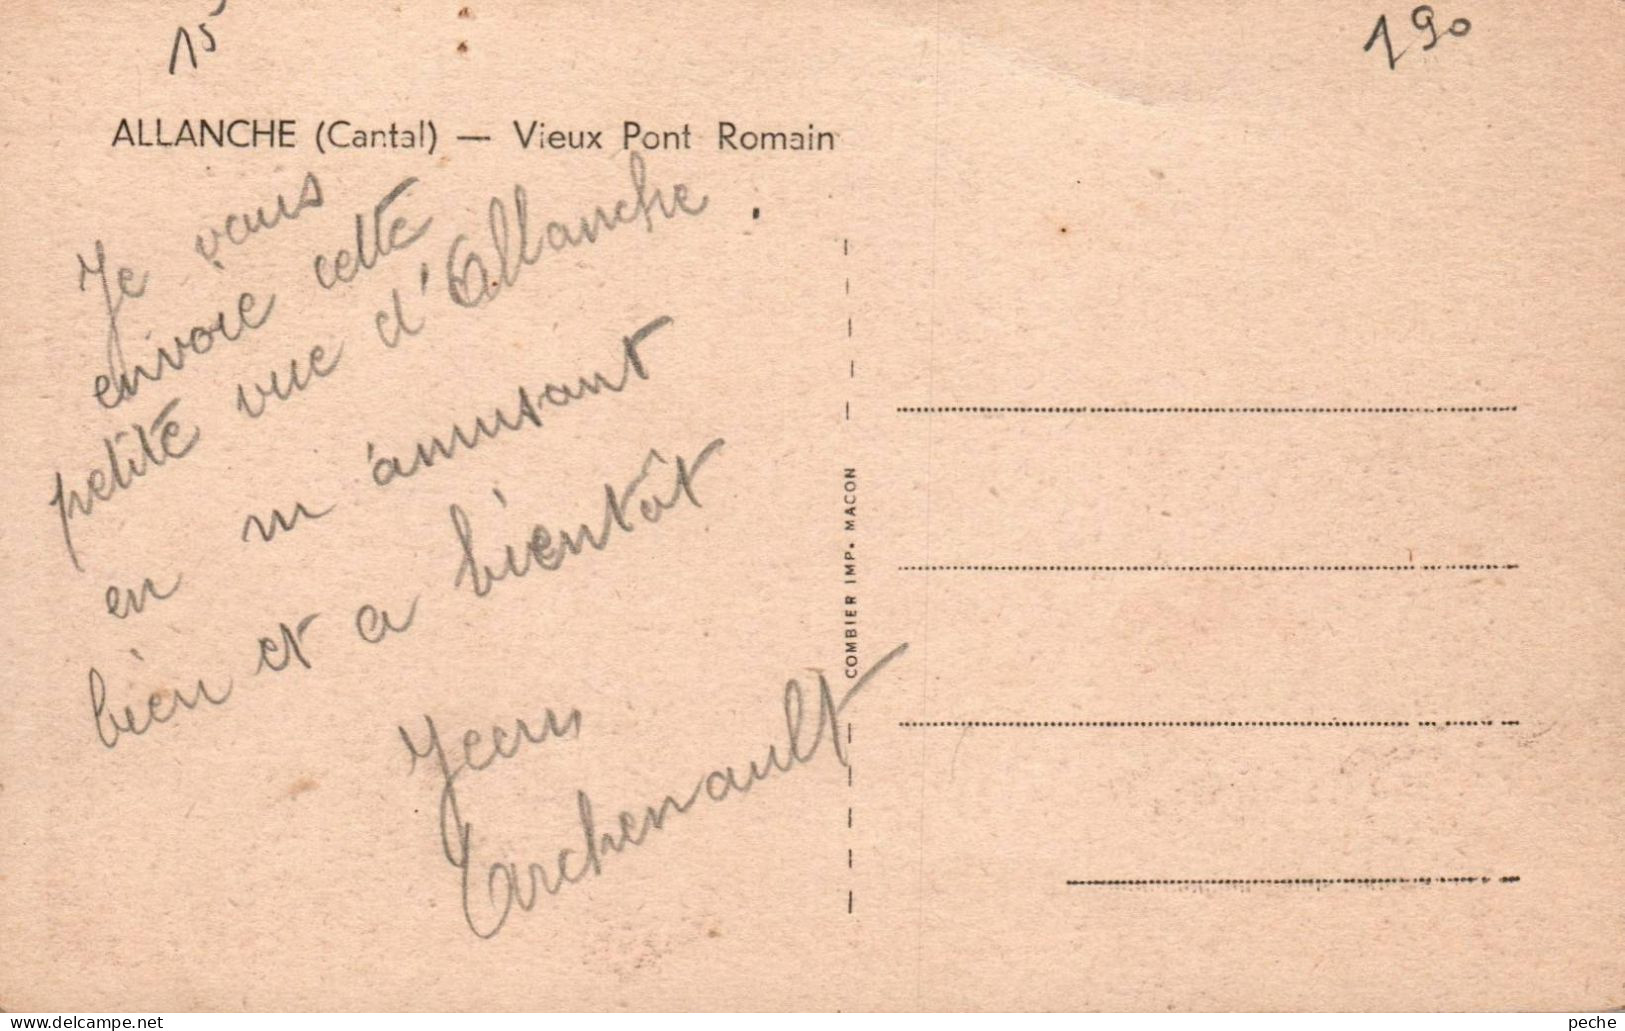 15
190
ALLANCHE (Cantal) — Vieux Pont Romain
Je vous
envoie cette
petite vue d'Allanche
en m'amusant
bien et a bientôt
Jean
Archenault
COMBIER IMP. MACON
peche